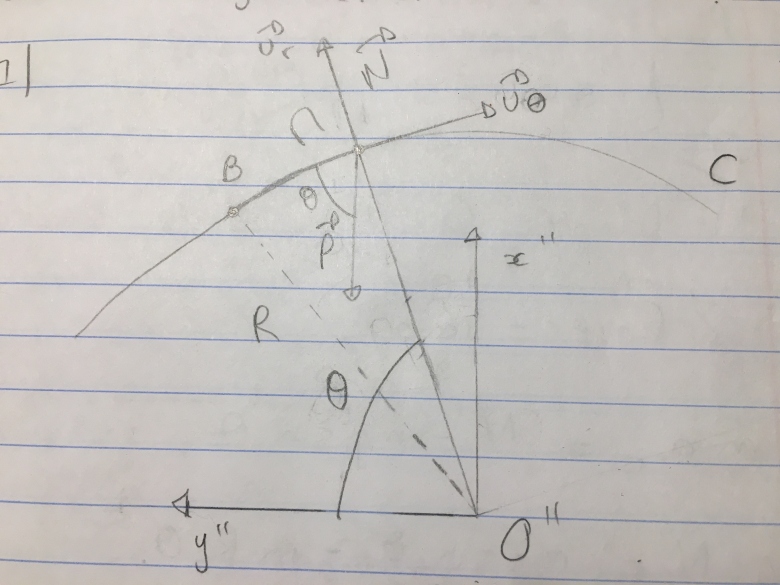 1|
u⃗r N⃗
u⃗θ
M
B
C
θ
P⃗
x"
R
θ
y" O"